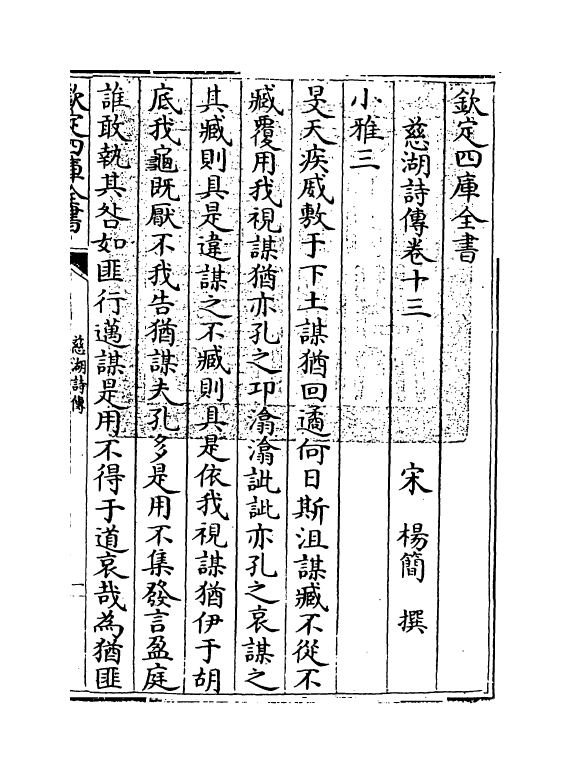 欽定四庫全書
慈湖詩傳卷十三
宋　楊簡　撰
小雅三
旻天疾威敷于下土謀猶回遹何日斯沮謀臧不從不
臧覆用我視謀猶亦孔之卭潝潝訿訿亦孔之哀謀之
其臧則具是違謀之不臧則具是依我視謀猶伊于胡
底我龜既厭不我告猶謀夫孔多是用不集發言盈庭
誰敢執其咎如匪行邁謀是用不得于道哀哉為猶匪
欽定四庫全書
慈湖詩傳
一